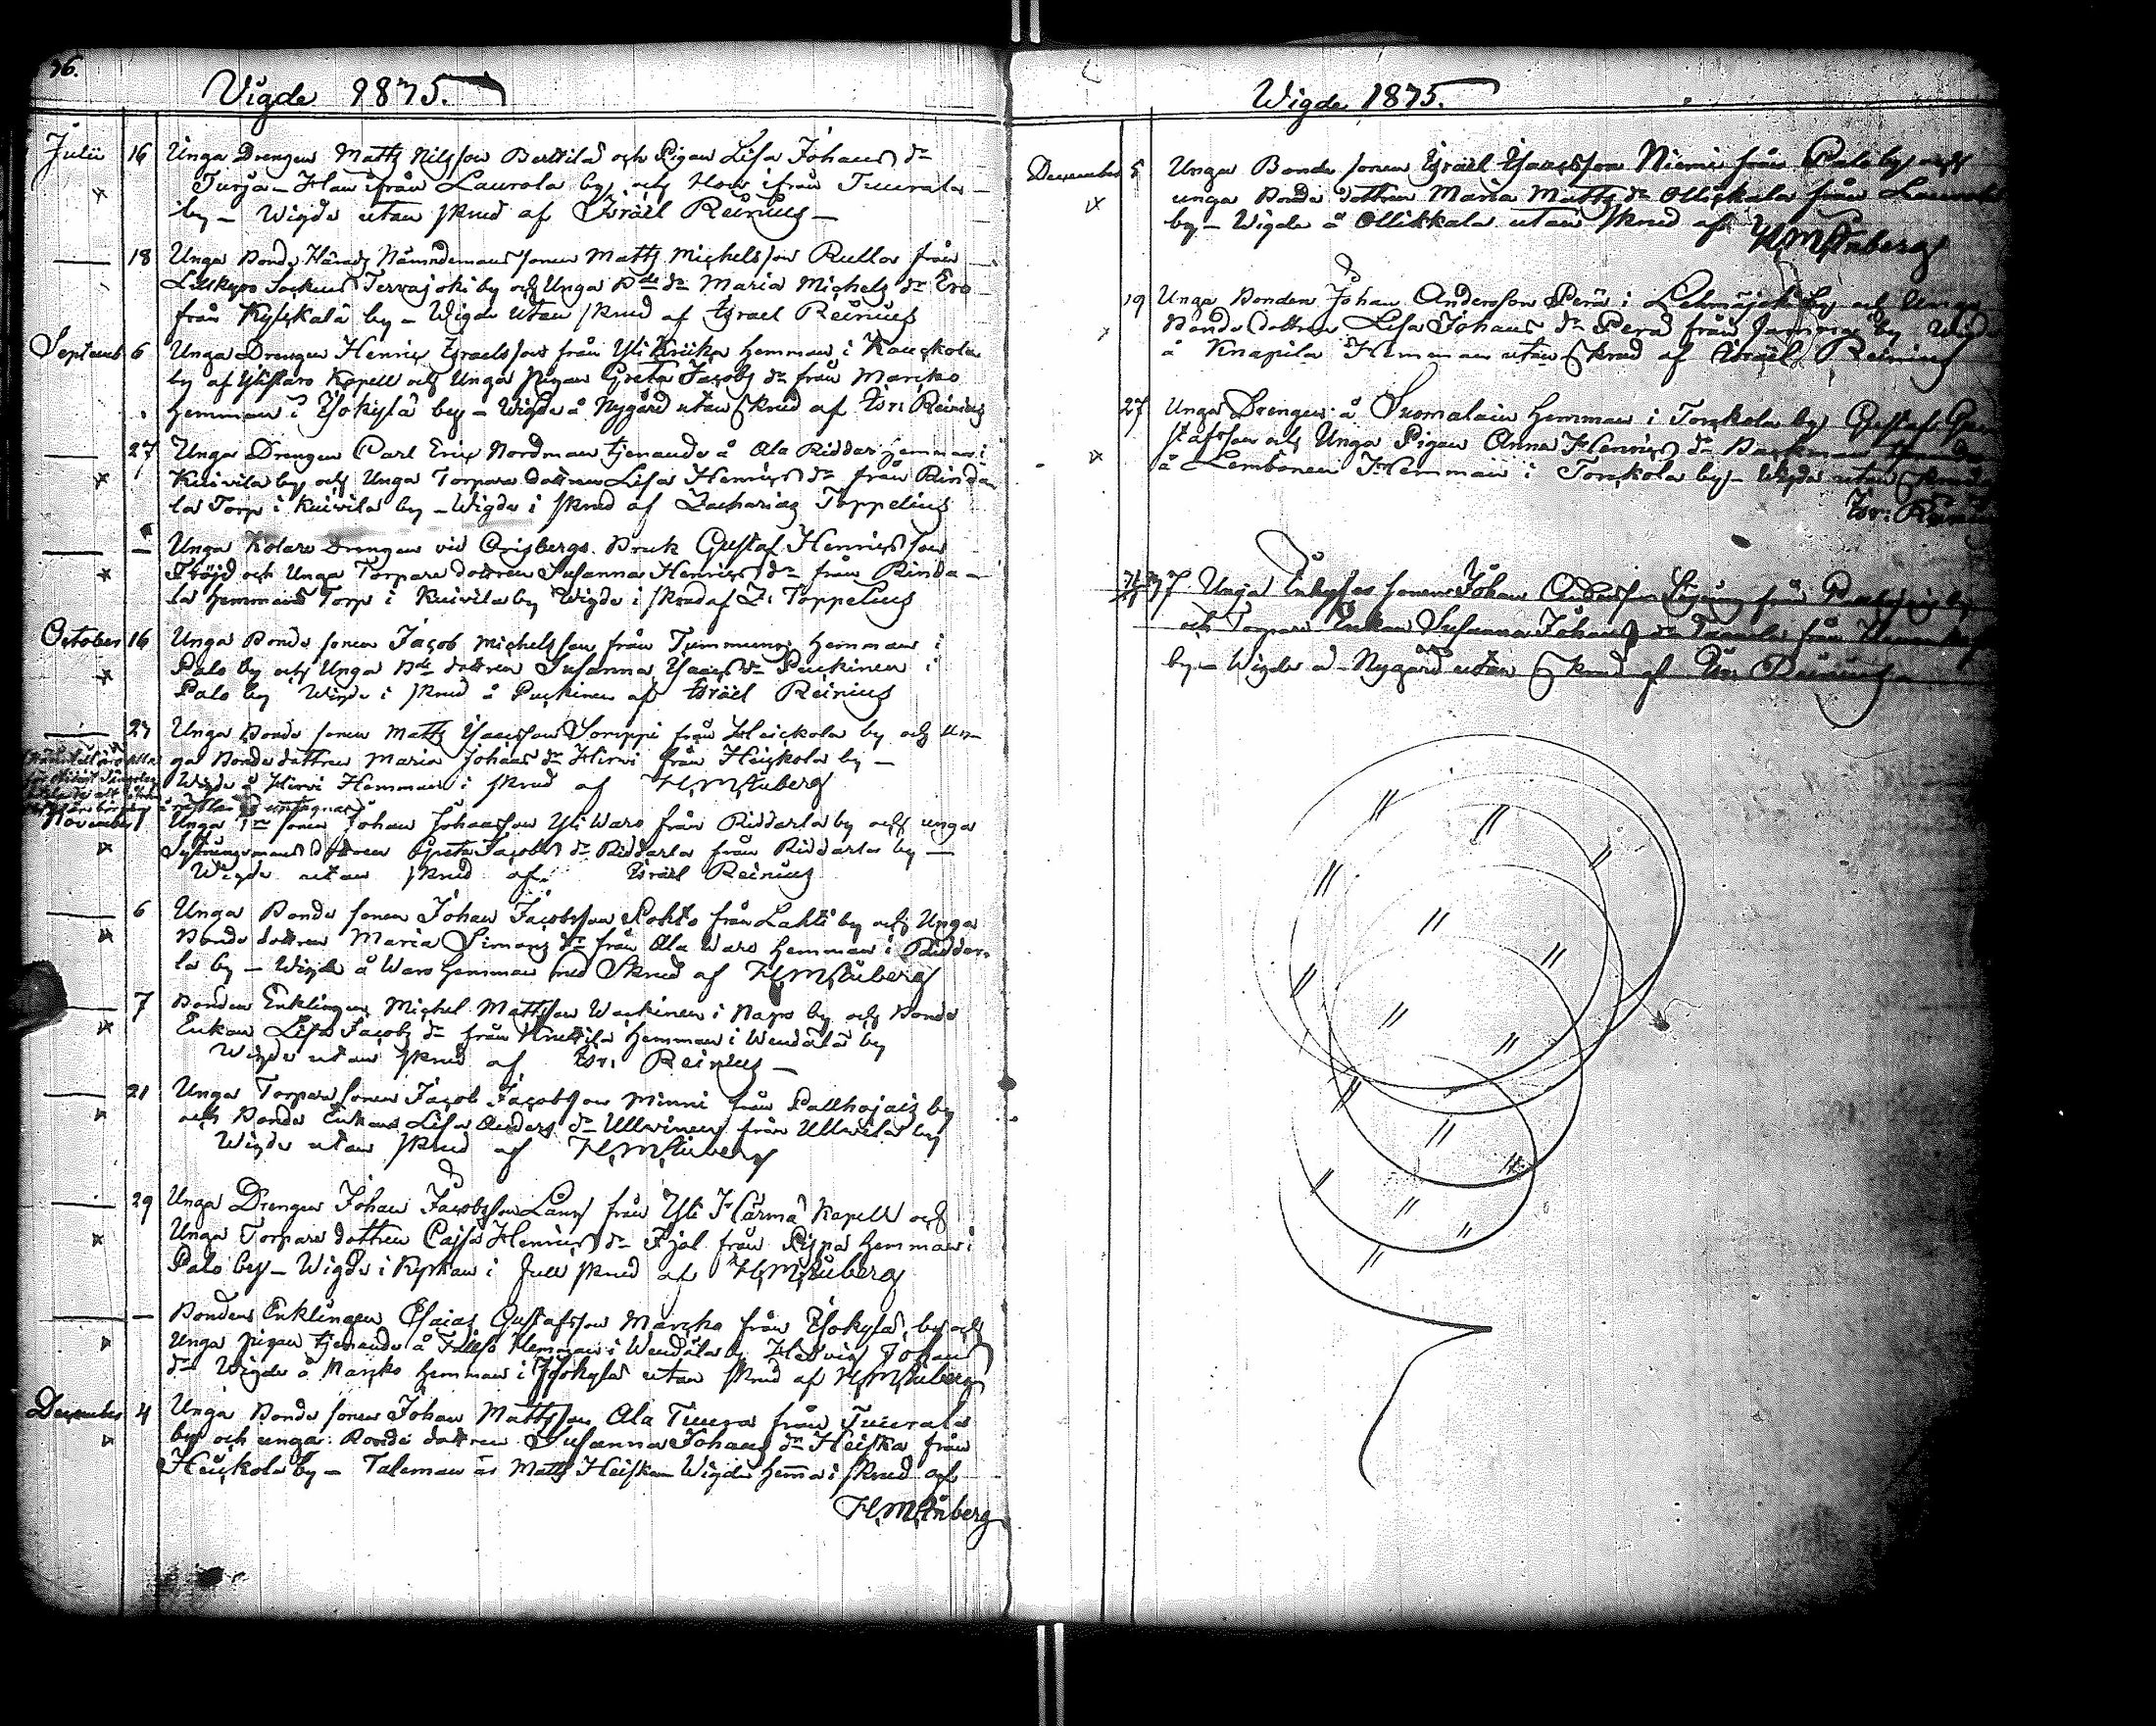 36.
Vigde 1875.
Julii 16 Unga Drengen Matts Nilsson Bertila och Pigan Lisa Johans dr
Turja - Han ifrån Laurola by och Hon ifrån Tuurala
by - Wigde utan skrud af Israël Reinius -
18 Unga Bonde Härads Nämndemans sonen Matts Michelsson Rullo från
Lillkyro Sockens Tervajoki by och Unga Bde dr Maria Michels dr Ero
från Kylkkälä by - Wigde utan skrud af Israel Reinius
Septemb 6 Unga Drengen Henric Israelsson från Yli Kriika Hemman i Kauckola
by af Ylistaro Kapell och Unga Pigan Greta Jacobs dr från Marcko
Hemman i Isokylä by - Wigde å Nygård utan skrud af Isr: Reinius
27 Unga Drengen Carl Eric Nordman tjenande å Ala Riddar Hemman i
Kuivila by och Unga Torpare dottren Lisa Henrics dr från Rinda
la Torp i Kuivila by - Wigde i skrud af Zacharias Toppelius
— Unga Kolare Drengen vid Orisbergs Bruk Gustaf Henricsson
Fröjd och Unga Torpare dottren Susanna Henrics dr från Rinda -
la Hemmans Torp i Kuivila by Wigde i skrud af Z. Toppelius
October 16 Unga Bonde sonen Jacob Michelsson från Tummunen Hemman i
Palo by och Unga Bde dottren Susanna Isaacs dr Puckinen i
Palo by Wigde i skrud å Puckinen af Israël Reinius
23 Unga Bonde sonen Matts Isacsson Sorippi från Heickola by och un-
ga Bonde dottren Maria Johans dr Hirvi från Heickola by -
Wigde å Hirvi Hemman i skrud af H.M.Stuberg
November 1 Unga sonen Johan Johansson Yli Waro från Riddarla by och unga
Sytningsmans dottren Greta Jacobs dr Riddarla från Riddarla by -
Wigde utan skrud af Israël Reinius
6 Unga Bonde sonen Johan Jacobsson Pohto från Lahti by och Unga
Bonde dottren Maria Simons dr från Ala Waro Hemman i Riddar-
la by - Wigde å Waro Hemman med Skrud af H.M.Stuberg
7 Bonden Enklingen Michel Mattsson Wackinen i Napo by och Bonde
Enkan Lisa Jacobs dr från Knuttila Hemman i Wendälä by
Wigde utan skrud af Isr: Reinius -
21 Unga Torpare sonen Jacob Jacobsson Minni från Pallhojais by
och Bonde Enkan Lisa Anders dr Ullvinen från Ullvila by
Wigde utan skrud af H.M.Stuberg
29 Unga Drengen Johan Jacobsson Lång från Yli Härmä Kapell och
Unga Torpare dottren Caisa Henrics dr Fjäl från Hemman i
Palo by - Wigde i Kyrkan i full skrud af H.M.Stuberg
— Bonden Enklingen Esaias Gustafsson Marcko från Isokylä by och
Unga pigan tjenande å Hemman i Wendälä by Hedvig Johans
dr Wigde å Marcko Hemman i Isokylä utan skrud af H.M.Stuberg
December 4 Unga Bonde sonen Johan Mattsson Ala Tuura från Tuurala
by och unga Bonde dottren Susanna Johans dr Heicka från
Heickola by - Taleman är Matts Heicka Wigde hemma i skrud af
H.M.Stuberg
Wigde 1875.
December 5 Unga Bonde sonen Israël Isaacsson Niemi från Palo by och
unga Bonde dottren Maria Matts dr Ollikkala från
by - Wigde å Ollikkala utan skrud af H.M.Stuberg
19 Unga Bonden Johan Andersson Perä i Lehmäjoki by och Unga
Bonde dottren Lisa Johans dr Perä från by
å Knapila Hemman utan Skrud af Israël Reinius
27 Unga Drengen å Suomalain Hemman i Torckola by Gustaf Gu
stafsson och Unga Pigan Anna Henrics dr
å Lembonen Hemman i Torckola by - Wigde utan Skrud
Isr: Reinius
Unga sonen Johan Andersson från by
och Torpare Enkan Susanna Johans dr från
by - Wigde å Nygård utan Skrud af Isr: Reinius